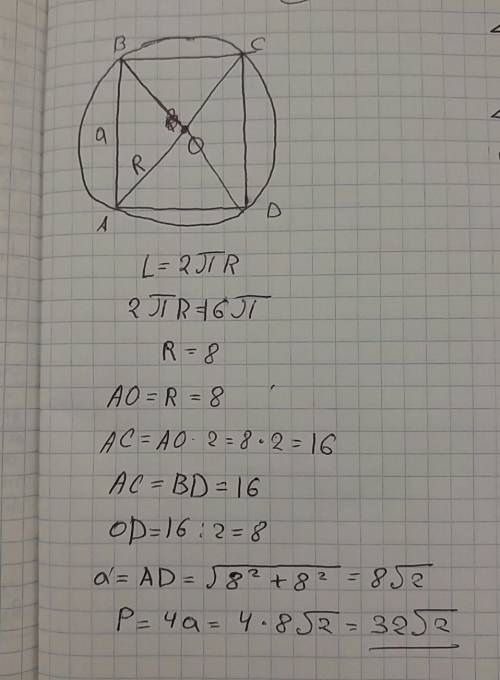 B C
a
R O
A D
L = 2πR
2πR = 16π
R = 8
AO = R = 8
AC = AO · 2 = 8 · 2 = 16
AC = BD = 16
OD = 16 : 2 = 8
a = AD = √8² + 8² = 8√2
P = 4a = 4 · 8√2 = 32√2